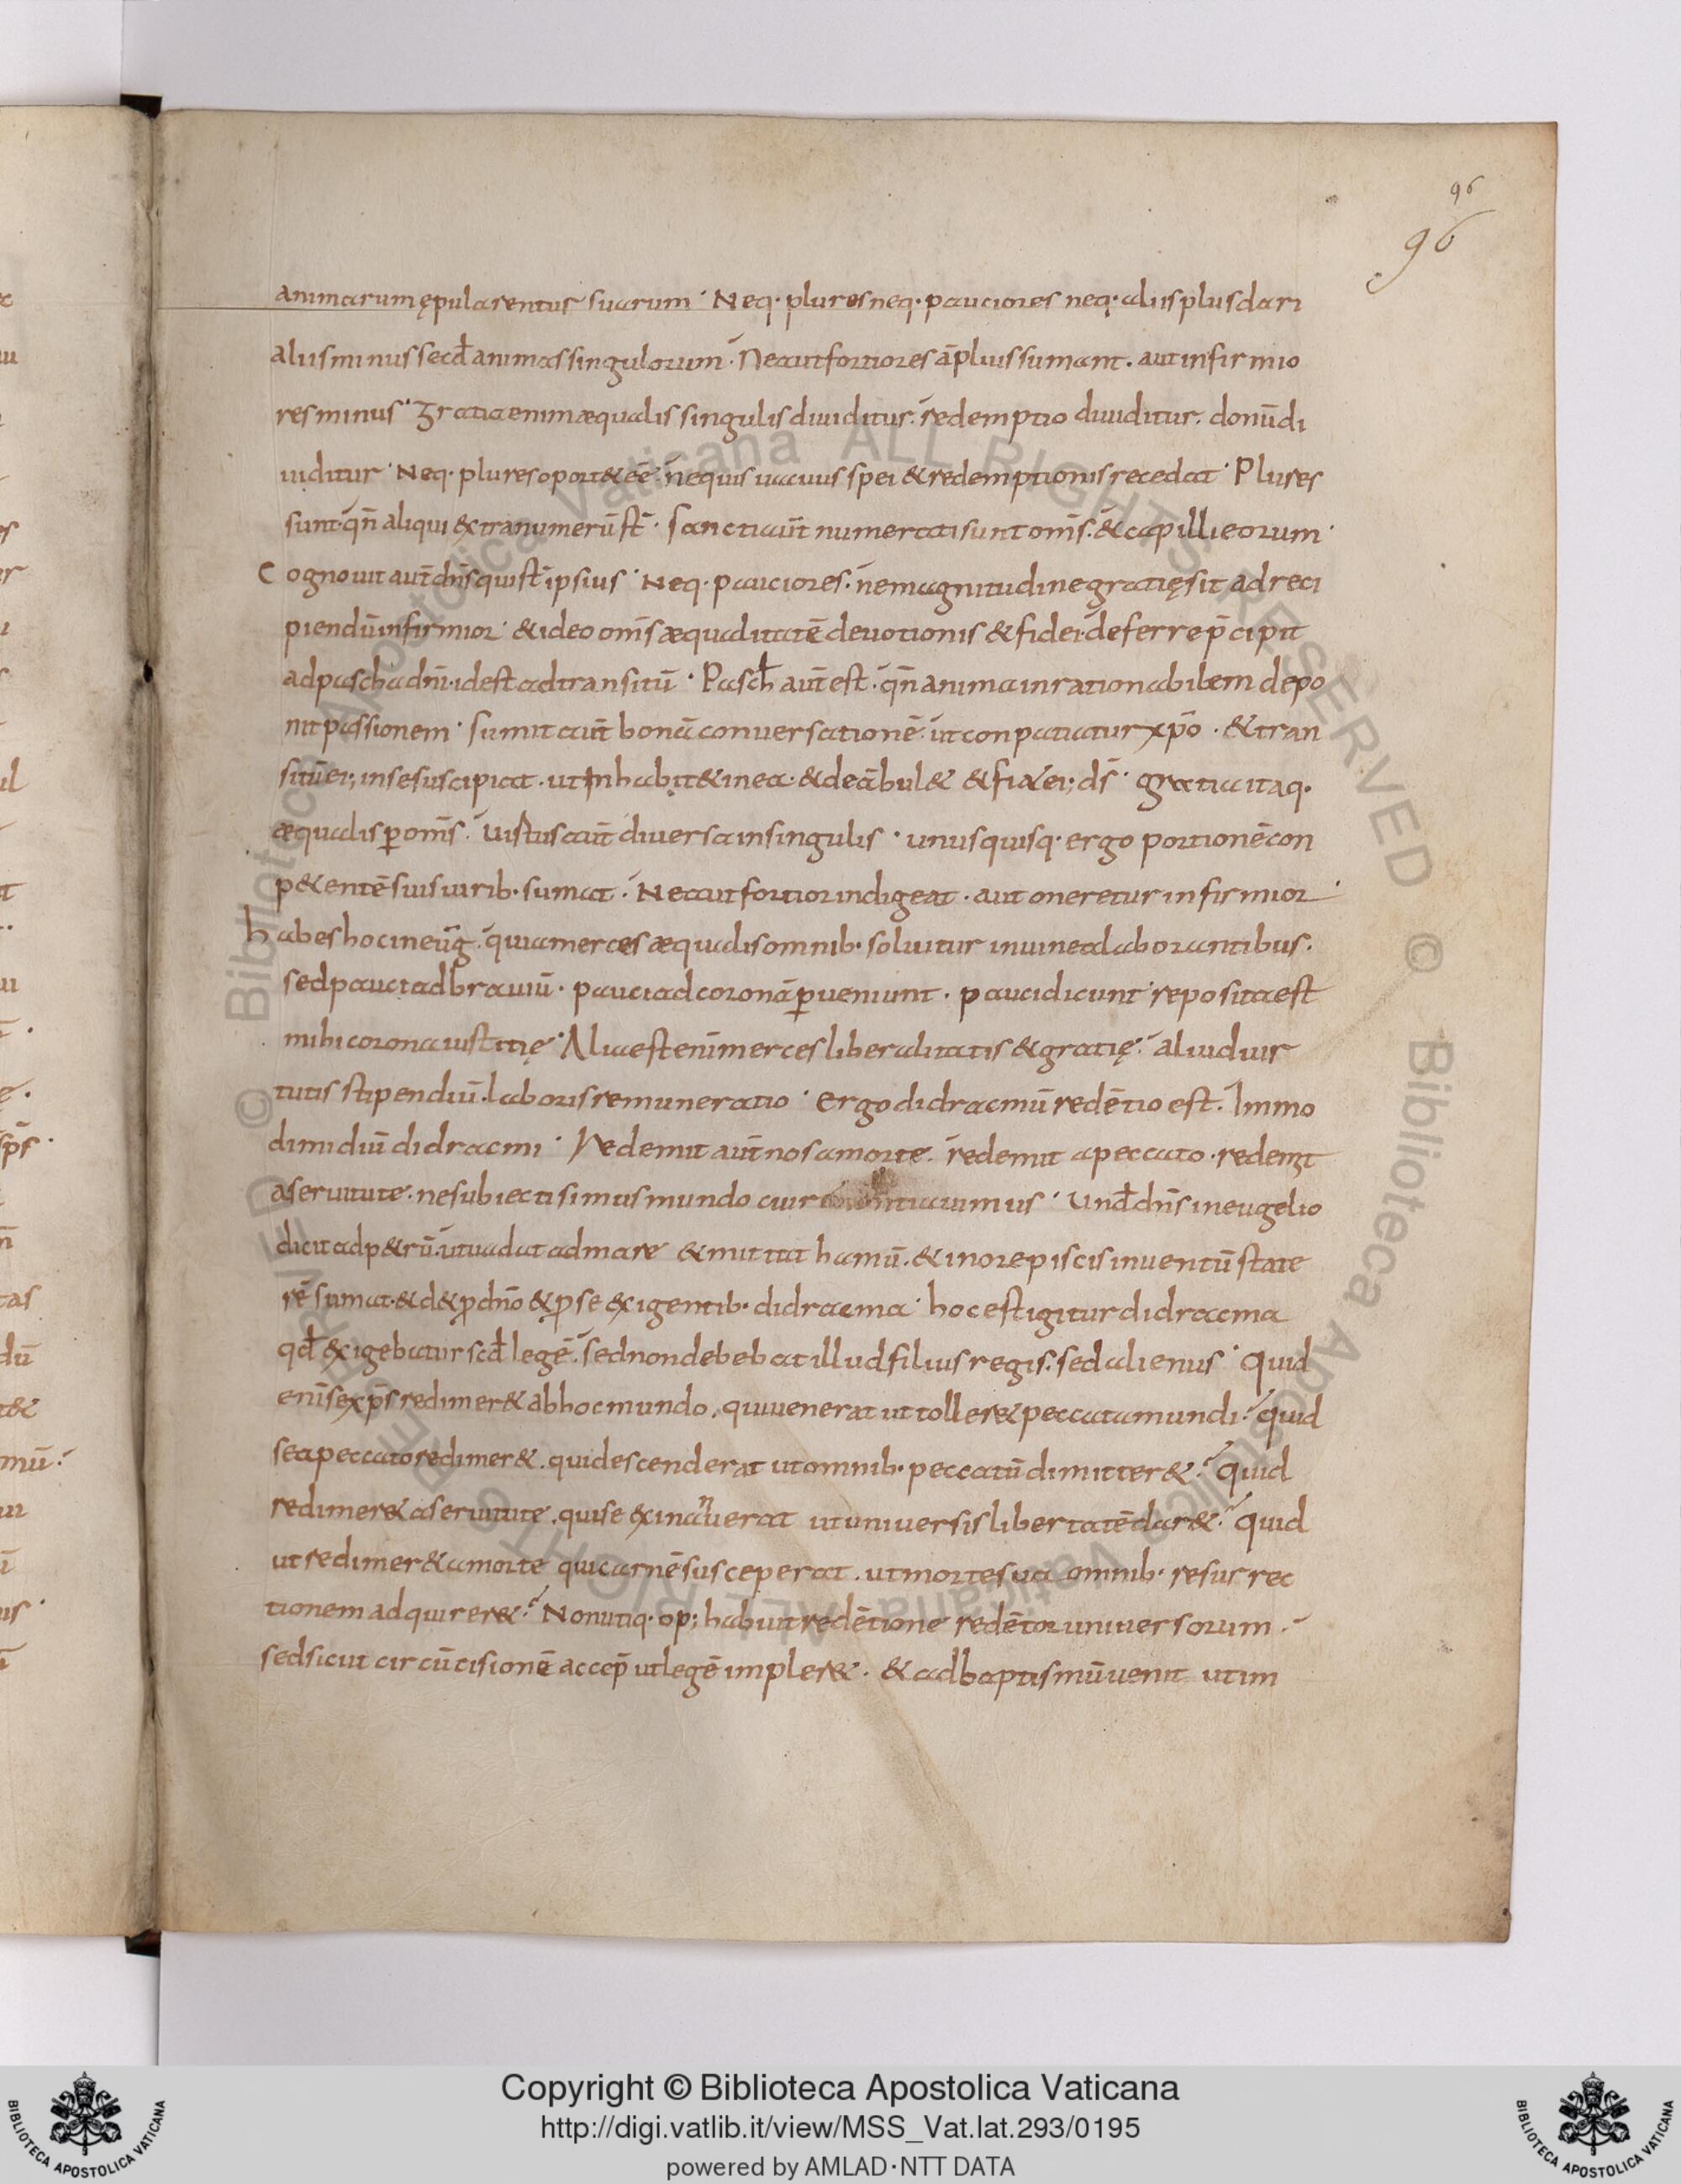 96
96
animarum ępularentur suarum · Neq· plures neq· pauciores neq· aliis plus dari
aliis minus sec̄d animas singulorum · Ne aut fortiores āplius sumant . aut infirmio
res minus · Gratia enim æqualis singulis diuiditur . redemptio diuiditur . donū di
uiditur · Neq· plures oport& eē . ne quis uacuus spei & redemptionis recedat · Plures
sunt qn̄ aliqui extra numerū st̄ · sancti aut̄ numerati sunt om̄s . & capilli eorum ·
Cognouit aut̄ dn̄s qui st̄ ipsius · Neq· pauciores . ne magnitudine gratię sit ad reci
piendū infirmior · & ideo om̄s æqualitatē deuotionis & fidei deferre p̄cipit
ad pascha dn̄i · id est ad transitū · Pasch aut̄ est . qn̄ anima inrationabilem depo
nit passionem · sumit aut̄ bonā conuersationē . ut conpatiatur xp̄o . & tran
sitū ei; in se suscipiat . ut inhabit& in ea · & deābul& & fiat ei; ds̄ · gratia itaq·
æqualis p̄ om̄s . uirtus aut̄ diuersa in singulis · unusquisq· ergo portionē con
p&entē suis uirib· sumat . Ne aut fortior indigeat . aut oneretur infirmior ·
habes hoc in euḡ . quia merces æqualis omnib· soluitur in uinea laborantibus .
sed pauci ad brauiū · pauci ad coronā p̄ueniunt . pauci dicunt reposita est
mihi corona iustitię · Alia est enī merces liberalitatis & gratię . aliud uir
tutis stipendiū . laboris remuneratio · ergo didracmū redētio est . Immo
dimidiū didracmi · Redemit aut̄ nos a morte . redemit a peccato · redemit
a seruitute . ne subiecti simus mundo cui · Und̄ dn̄s in eugelio
dicit ad p&rū . ut uadat ad mare & mittat hamū . & in ore piscis inuentū state
rē sumat · & d& p̄ dn̄o & p̄ se exigentib· didracma · hoc est igitur didracma
qd̄ exigebatur scd̄ legē . sed non debebat illud filius regis . sed alienus · Quid
enī se xp̄s redimer& ab hoc mundo . qui uenerat ut toller& peccata mundi . quid
se a peccato redimer& . qui descenderat ut omnib· peccatū dimitter& . quid
redimer& a seruitute . qui se exinanierat ut uniuersis libertatē dar& . quid
ut redimer& a morte qui carnē susceperat . ut morte sua omnib· resurrec
tionem adquirer& . Non utiq· op; habuit redētione redētor uniuersorum .
sed sicut circūcisionē accep̄ ut legē impler& . & ad baptismū uenit ut im
Copyright © Biblioteca Apostolica Vaticana
http://digi.vatlib.it/view/MSS_Vat.lat.293/0195
powered by AMLAD·NTT DATA
BIBLIOTECA APOSTOLICA VATICANA
BIBLIOTECA APOSTOLICA VATICANA